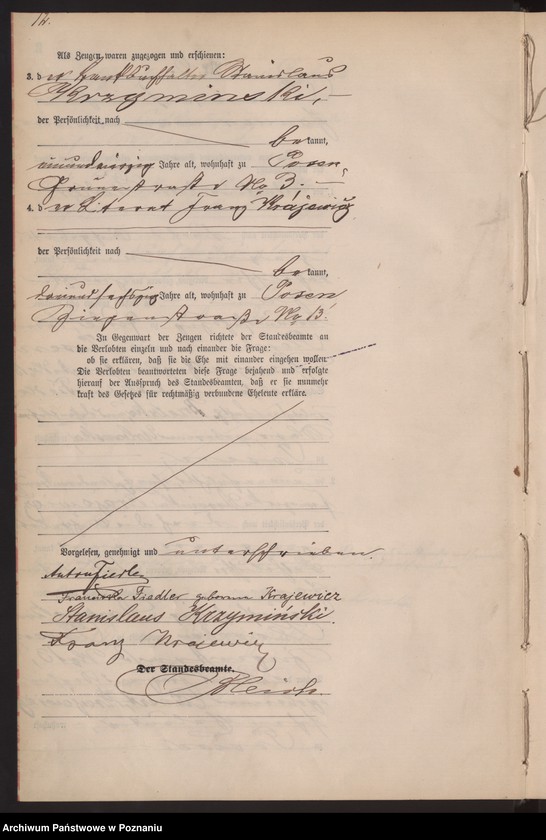 12.
Als Zeugen waren zugezogen und erschienen:
3. der Stanislaus
Krzyminski,
der Persönlichkeit nach
bekannt,
neunundvierzig Jahre alt, wohnhaft zu Posen,
No 3.
4. der Literat Franz Krajewicz
der Persönlichkeit nach
bekannt,
dreiundsechzig Jahre alt, wohnhaft zu Posen
No 13.
In Gegenwart der Zeugen richtete der Standesbeamte an
die Verlobten einzeln und nach einander die Frage:
ob sie erklären, daß sie die Ehe mit einander eingehen wollen.
Die Verlobten beantworteten diese Frage bejahend und erfolgte
hierauf der Ausspruch des Standesbeamten, daß er sie nunmehr
kraft des Gesetzes für rechtmäßig verbundene Eheleute erkläre.
Vorgelesen, genehmigt und unterschrieben.
Anton Fiedler
Fiedler geborene Krajewicz
Stanislaus Krzymiński.
Franz Krajewicz
Der Standesbeamte.
Archiwum Państwowe w Poznaniu